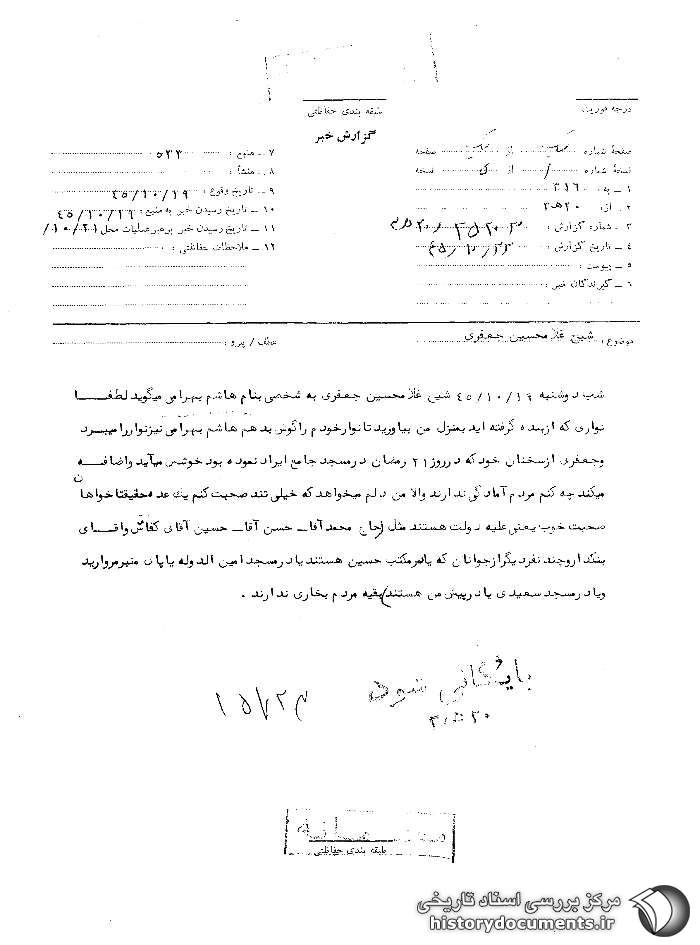 درجه فوریت
طبقه بندی حفاظتی
گزارش خبر
صفحهٔ شماره از صفحه
نسخهٔ شماره ۱ از نسخه
۱ ـ به : ۳۱۶
۲ ـ از : ۲۰ ه ۳
۳ ـ شماره گزارش :
۴ ـ تاریخ گزارش : ۴۵/۱۰/۲۲
۵ ـ پیوست :
۶ ـ گیرندگان خبر :
۷ ـ منبع : ۵۳۳
۸ ـ منشأ :
۹ ـ تاریخ وقوع : ۴۵/۱۰/۱۹
۱۰ ـ تاریخ رسیدن خبر به منبع : ۴۵/۱۰/۱۹
۱۱ ـ تاریخ رسیدن خبر به رهبر عملیات محل
۱۲ ـ ملاحظات حفاظتی :
موضوع : شیخ غلامحسین جعفری
عطف / پیرو :
شب دوشنبه ۴۵/۱۰/۱۹ شیخ غلامحسین جعفری به شخصی بنام هاشم بهرامی میگوید لطفا
نواری که ازبنده گرفته اید بمنزل من بیاورید تا نوار خودم را گوش بدهم هاشم بهرامی نیز نوار را میبرد
وجعفری ازسخنان خود که درروز ۲۱ رمضان درمسجد جامع ایراد نموده بود خوشش میآید واضافه
میکند چه کنم مردم آمادگی ندارند والا من دلم میخواهد که خیلی تند صحبت کنم یك عده حقیقتا خواهان
صحبت خوب یعنی علیه دولت هستند مثل حاج محمد آقا ـ حسن آقا ـ حسین آقای کفاش واقدای
بنکدار وچند نفر دیگر ازجوانان که یا در مکتب حسین هستند یا درمسجد امین الدوله یا پای منبر مروارید
ویا درمسجد سعیدی یا درپیش من هستند بقیه مردم بخاری ندارند .
بایگانی شود
۲۰ ه ۳
محرمانه
طبقه بندی حفاظتی
مرکز بررسی اسناد تاریخی
historydocuments.ir